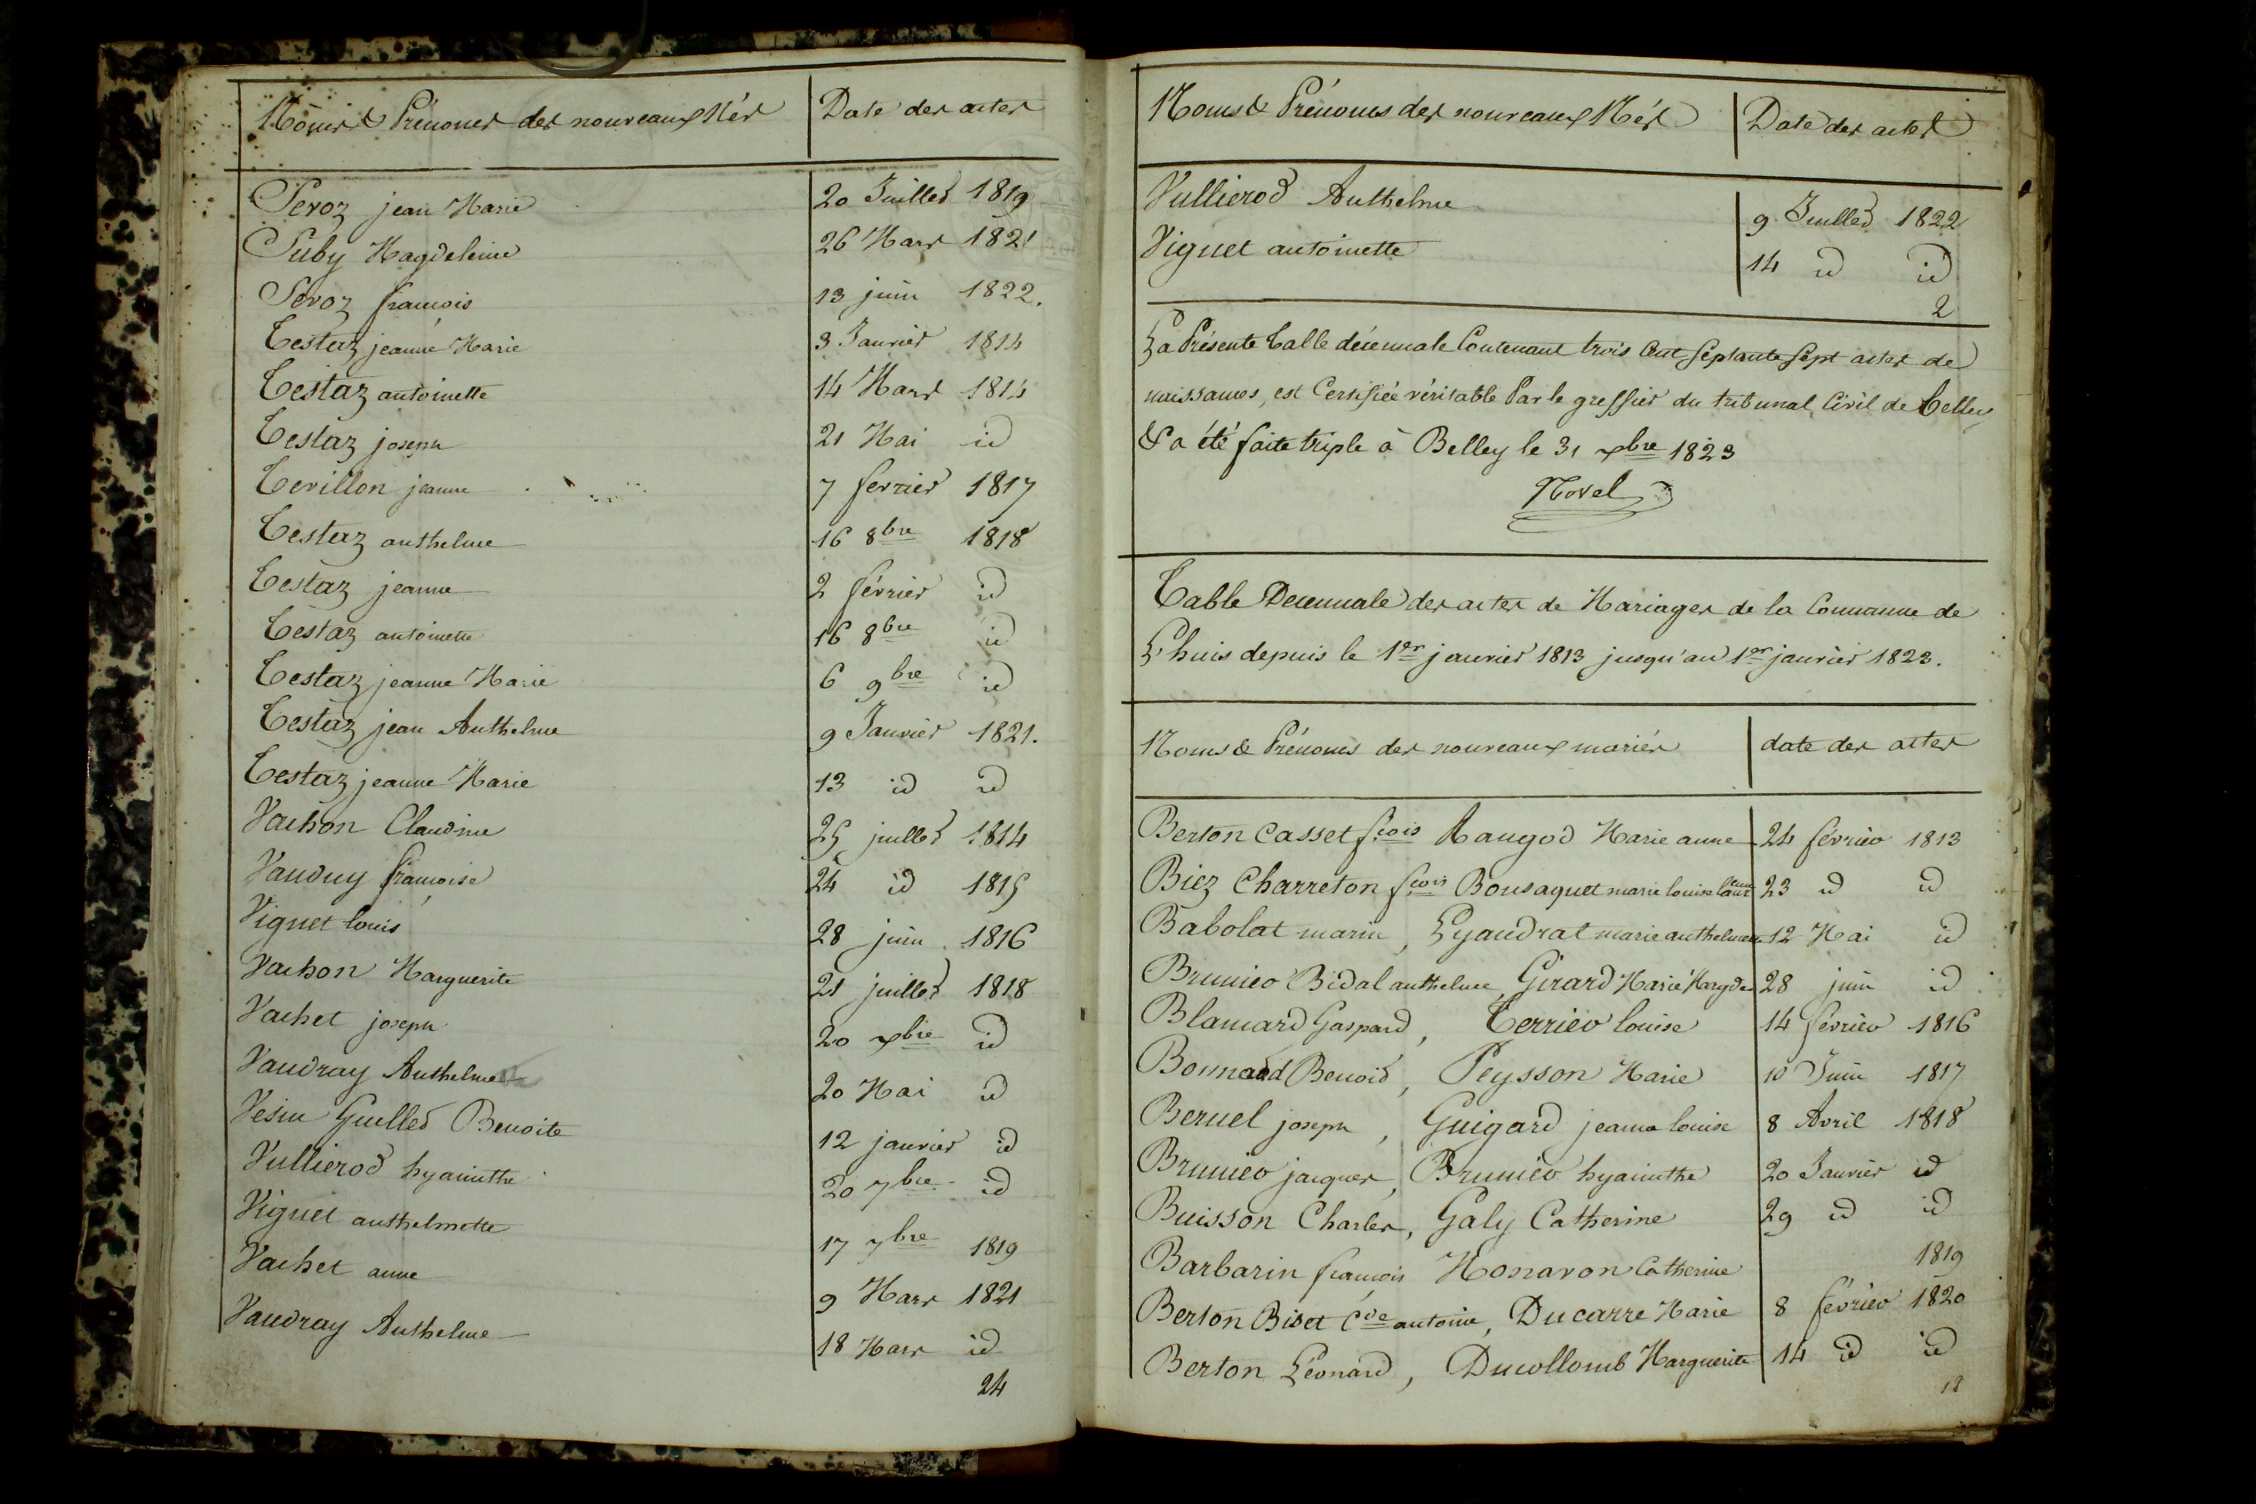 Noms & Prénoms des nouveaux Nés Date des actes
Seroz jean Marie 20 Juillet 1819
Suby Magdeleine 26 Mars 1821
Seroz françois 13 juin 1822.
Testaz jeanne Marie 3 Janvier 1814
Testaz antoinette 14 Mars 1814
Testaz joseph 21 Mai id
Tevillon jeanne 7 fevrier 1817
Testaz anthelme 16 8bre 1818
Testaz jeanne 2 février id
Testaz antoinette 16 8bre id
Testaz jeanne Marie 6 9bre id
Testaz jean Anthelme 9 Janvier 1821.
Testaz jeanne Marie 13 id id
Vachon Claudine 25 juillet 1814
Vauduy françoise 24 id 1815
Viguet louis 28 juin 1816
Vachon Marguerite 21 juillet 1818
Vachet joseph 20 xbre id
Vaudray Anthelme 20 Mai id
Vesin Guillet Benoite 12 janvier id
Vullierod hyacinthe 20 7bre id
Viguet anthelmette 17 7bre 1819
Vachet anne 9 Mars 1821
Vaudray Anthelme 18 Mars id
24
Noms & Prénoms des nouveaux Nés Date des actes
Vullierod Anthelme 9 Juillet 1822
Viguet antoinette 14 id id
2
La Présente Table décennale Contenant trois Cent Septante Sept actes de
naissances, est Certifiée véritable Par le greffier du tribunal Civil de Belley
& a été faite triple à Belley le 31 xbre 1823
Novel
Table Decennale des actes de Mariages de la Commune de
Lhuis depuis le 1er janvier 1813 jusqu'au 1er janvier 1823.
Noms & Prénoms des nouveaux mariés date des actes
Berton Casset fçois Raugod Marie anne 24 février 1813
Biez Charreton fçois Bousaquet marie louise 23 id id
Babolat marin, Lyaudrat marie anthelme 12 Mai id
Brunier Bidal anthelme, Girard Marie Magde 28 juin id
Blancard Gaspard, Terrier louise 14 fevrier 1816
Bonnard Benoid, Peysson Marie 10 Juin 1817
Beruel joseph, Guigard jeanne louise 8 Avril 1818
Brunier jacques, Brunier hyacinthe 20 Janvier id
Buisson Charles, Galy Catherine 29 id id
Barbarin françois Monavon Catherine 1819
Berton Biset Cde antoine, Ducarre Marie 8 février 1820
Berton Léonard, Ducollomb Marguerite 14 id id
12